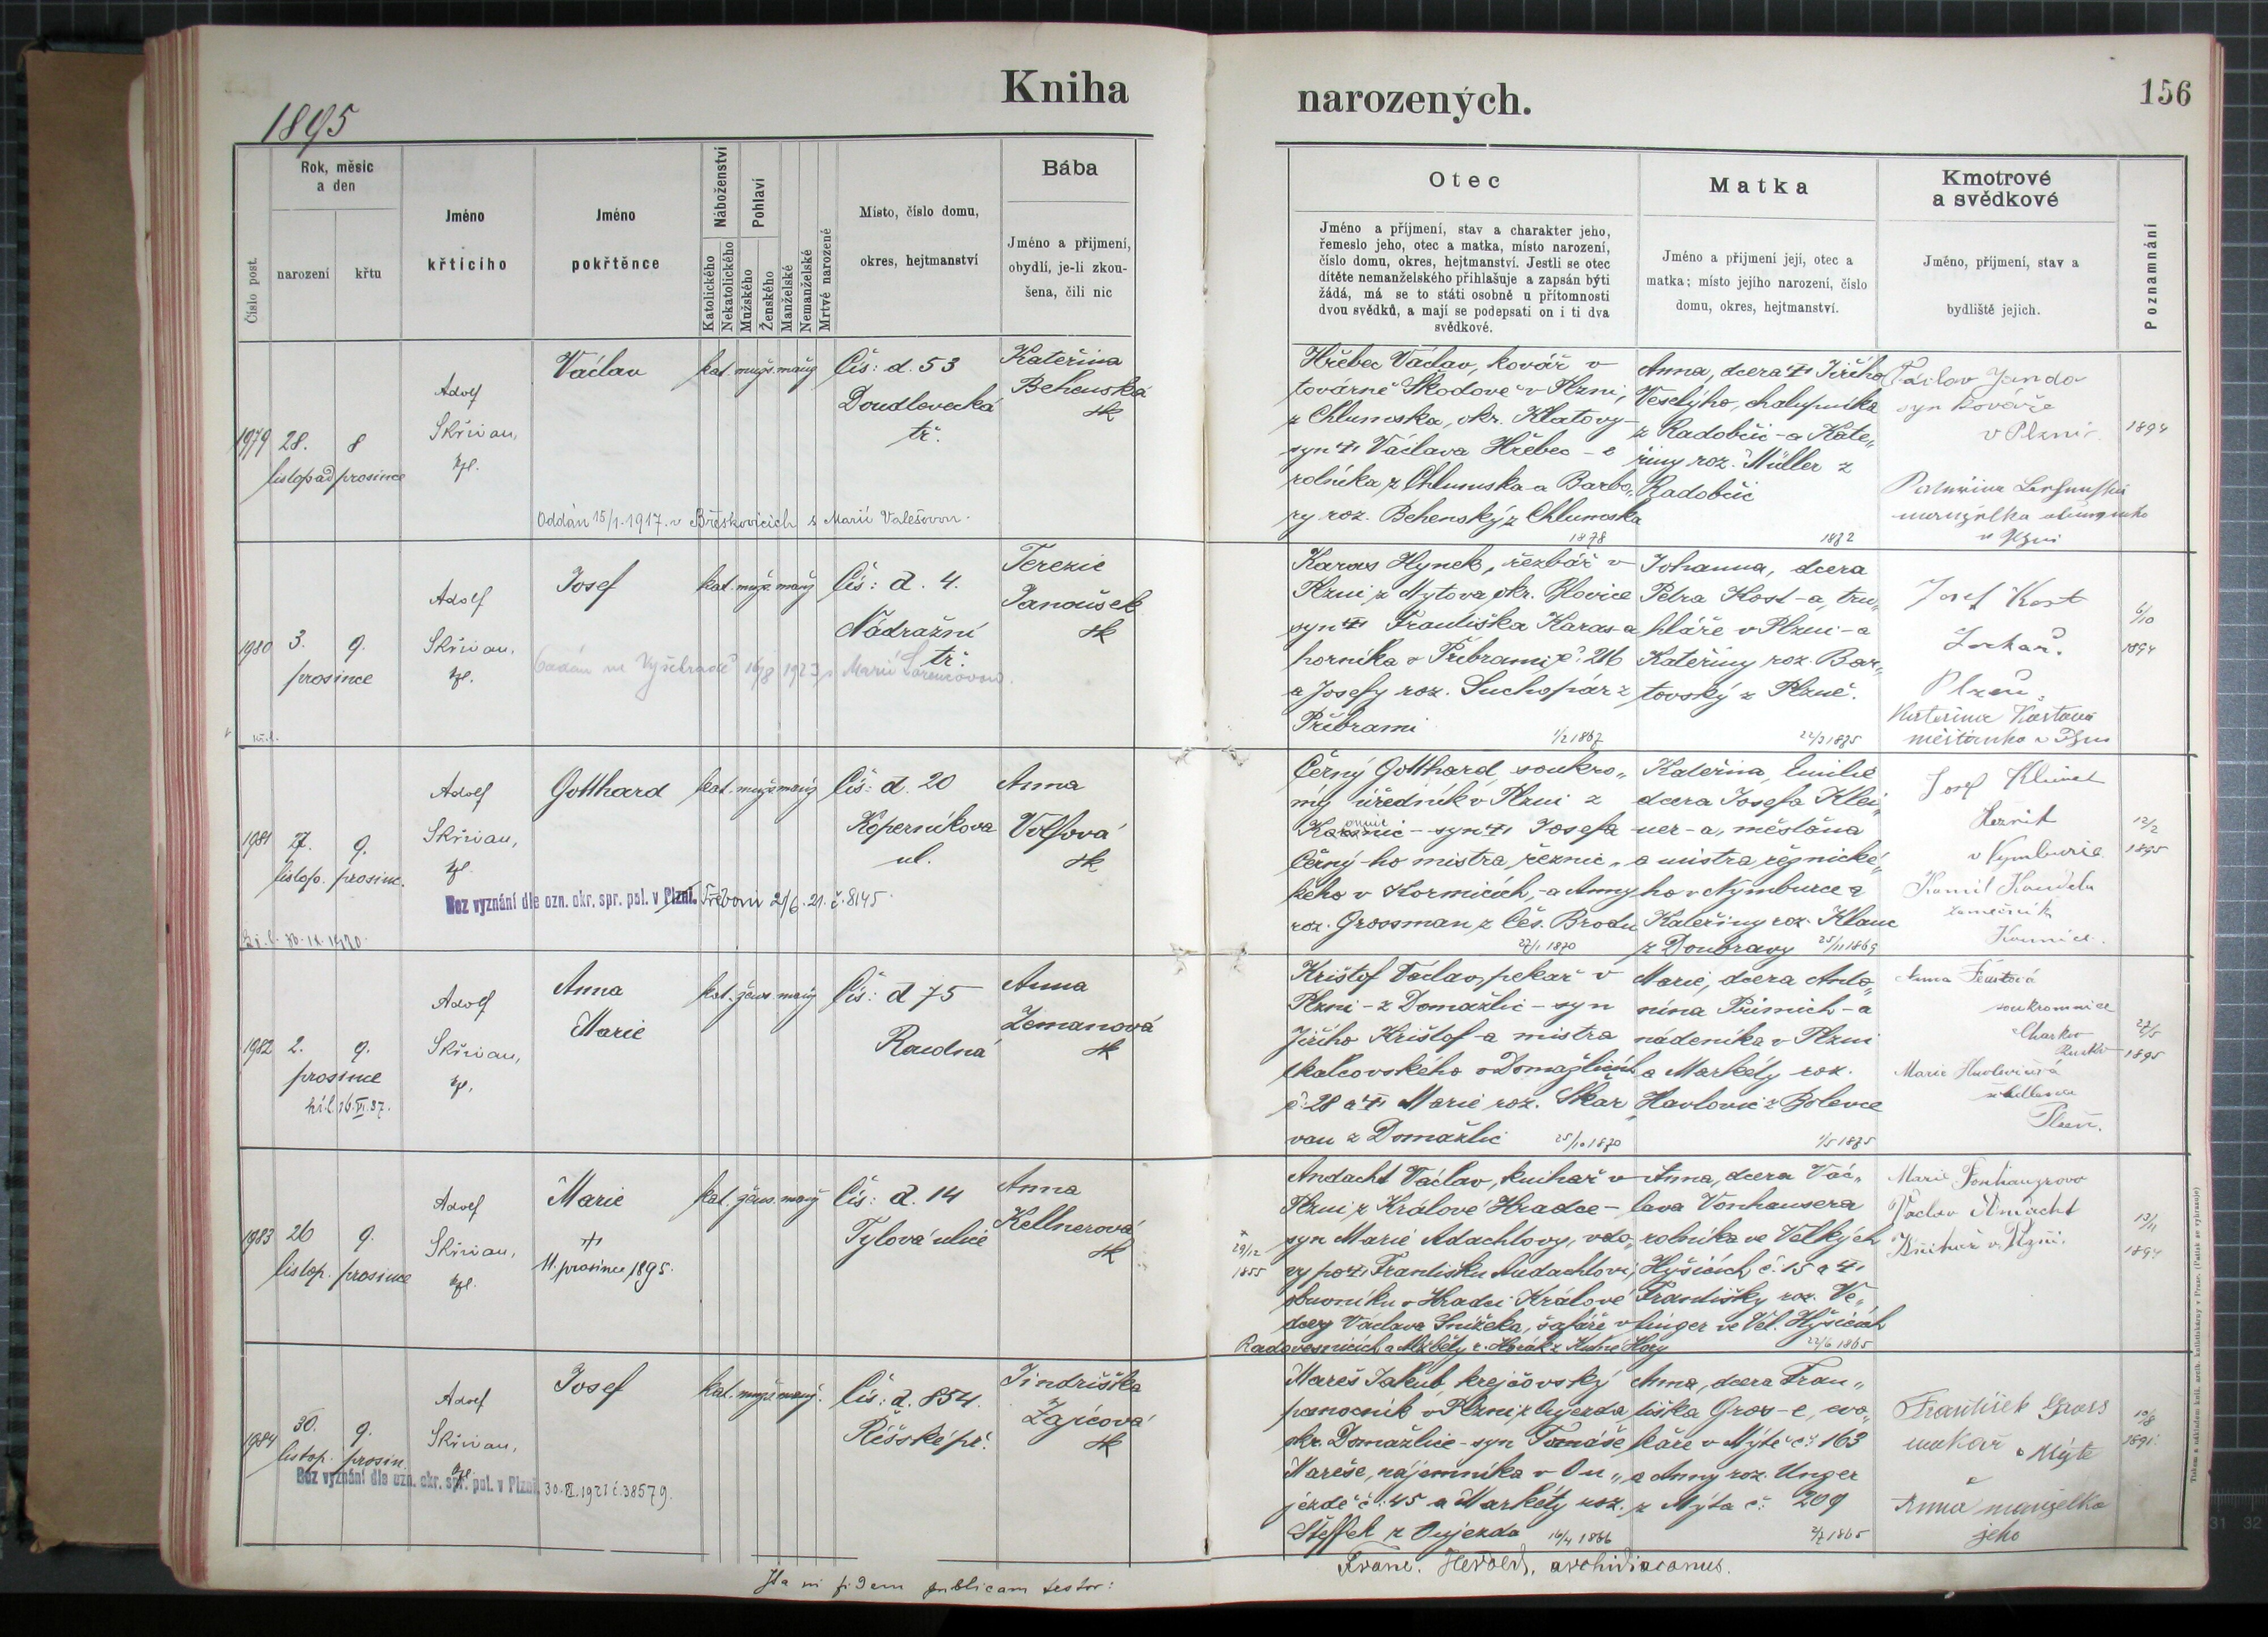 Kniha narozených.
156
1895
Číslo post.
Rok, měsíc
a den
narození
křtu
Jméno
křtícího
Jméno
pokřtěnce
Náboženství
Katolického
Nekatolického
Pohlaví
Mužského
Ženského
Manželské
Nemanželské
Mrtvé narozené
Místo, číslo domu,
okres, hejtmanství
Bába
Jméno a přijmení,
obydlí, je-li zkou-
šena, čili nic
Otec
Jméno a příjmení, stav a charakter jeho,
řemeslo jeho, otec a matka, místo narození,
číslo domu, okres, hejtmanství. Jestli se otec
dítěte nemanželského přihlašuje a zapsán býti
žádá, má se to státi osobně u přítomnosti
dvou svědků, a mají se podepsati on i ti dva
svědkové.
Matka
Jméno a přijmení její, otec a
matka; místo jejího narození, číslo
domu, okres, hejtmanství.
Kmotrové
a svědkové
Jméno, příjmení, stav a
bydliště jejich.
Poznamnání
1979
28.
listopad
8
prosince
Adolf
Skřivan,
kpl.
Václav
kat. muž. manž
Čís: d. 53
Doudlevecká
tř.
Kateřina
Behenská
zk
Oddán 15/1.1917. v Břeskovicích s Marií Valešovou.
Hřebec Václav, kovář v
továrně Škodově v Plzni,
z Chlumska, okr. Klatovy-
syn Václava Hřebec-e
rolníka z Chlumska a Barbo„
ry roz. Behenský z Chlumska
1878
Anna, dcera Jiřího
Veselýho, chalupníka
z Radobčic-a Kate„
řiny roz. Müller z
Radobčic
1872
Václav Janda
syn kováře
v Plzni
manželka
v Plzni
1894
1980
3.
prosince
9.
Adolf
Skřivan,
kpl.
Josef
kat. muž. manž
Čís: d. 4.
Nádražní
tř.
Terezie
Janoušek
zk
Oddán na Vyšehradě 16/8 1923 s Marií
Karas Hynek, řezbář v
Plzni z Mýtova, okr. Blovice
syn Františka Karas-a
horníka v Příbrami, č. 216
a Josefy roz. Suchopár z
Příbrami
1/2 1867
Johanna, dcera
Petra Kost-a, tru„
hláře v Plzni-a
Kateřiny roz. Bar„
tovský z Plzně.
24/3 1875
Josef Kost
Plzeň.
Kateřina Kostová
měšťanka v Plzni
6/10
1894
1981
27.
listop.
9.
prosinc.
Adolf
Skřivan,
kpl.
Gotthard
kat. muž. manž
Čís: d. 20
Koperníkova
ul.
Anna
Volfová
zk
Bez vyznání dle ozn. okr. spr. pol. v Plzni. Třeboni 21/6. 21. č. 8145.
Černý Gotthard, soukro„
mý úředník v Plzni z
syn Josefa
Černý-ho mistra řeznic„
kého v Kormicích,-a Anny
roz. Grossman z Čes. Brodu
27/1 1870
Kateřina, Emilie
dcera Josefa Klei„
ner-a, měšťana
a mistra řeznické„
ho v Nymburce a
Kateřiny roz. Klauc
z Doubravy 25/11 1869
Josef
Řezník
v Nymburce
Kamil Koudela
zámečník
12/2
1895
1982
2.
prosince
9.
Adolf
Skřivan,
kpl.
Anna
Marie
kat. žens. manž
Čís: d 75
Roudná
Anna
Zemanová
zk
Krištof Václav, pekař v
Plzni-z Domažlic-syn
Jiřího Krištof-a mistra
v Domažlicích
č. 28 a Marie roz. Skar„
van z Domažlic 25/10 1870
Marie, dcera Anto„
nína Primich-a
nádeníka v Plzni
a Markéty roz.
Havlovic z Bolevce
1/5 1875
Anna
soukromnice
Charkov
Rusko
Marie
Plzeň.
27/5
1895
1983
26
listop.
9.
prosince
Adolf
Skřivan,
kpl.
Marie
11. prosince 1895.
kat. žens. manž
Čís: d. 14
Tylova ulice
Anna
Kellnerová
zk
29/12
1855
Andacht Václav, knihař v
Plzni z Králové Hradce-
syn Marie Adachtovy, vdo„
vy po Františku Andachtovi,
obuvníku v Hradci Králové
dcery Václava Sníčeka, šafáře v
Radovesnicích a Alžběty r. Horák z Kutné Hory
Anna, dcera Vác„
lava Vonhausera
rolníka ve Velkých
Hyšicích č. 15 a
Františky roz. Ve„
linger ve Vel. Hyšicích
22/6 1865
Marie
Václav Andacht
Knihař v Plzni.
13/11
1894
1984
30.
listop.
9.
prosin.
Adolf
Skřivan,
kpl.
Josef
kat. muž. manž.
Čís: d. 854.
Říšské př.
Jindřiška
Zajícová
zk
Bez vyznání dle ozn. okr. spr. pol. v Plzni. 30.VI.1921 č. 38579.
Mareš Jakub, krejčovský
pomocník v Plzni z Oujezda,
okr. Domažlice-syn Tomáše
Mareše, nájemníka v Ou„
jezdě č. 45 a Markéty roz.
Steffek z Oujezda 16/4 1866
Anna, dcera Fran„
tiška Gros-e, cvo„
kaře v Mýtě č. 163
a Anny roz. Unger
z Mýta č. 209
2/7 1865
František Gross
cvokař v Mýtě
Anna manželka
jeho
10/8
1891.
Ita in fidem publicam testor:
Franc. Herold, archidiaconus.